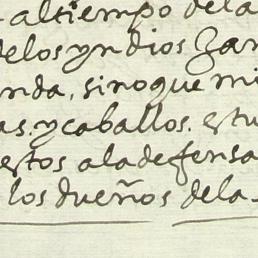 altiempo dela
delos yndios Zan
nda, sinoque mi
as. y caballos. estu
estos aladefensa
los dueños dela